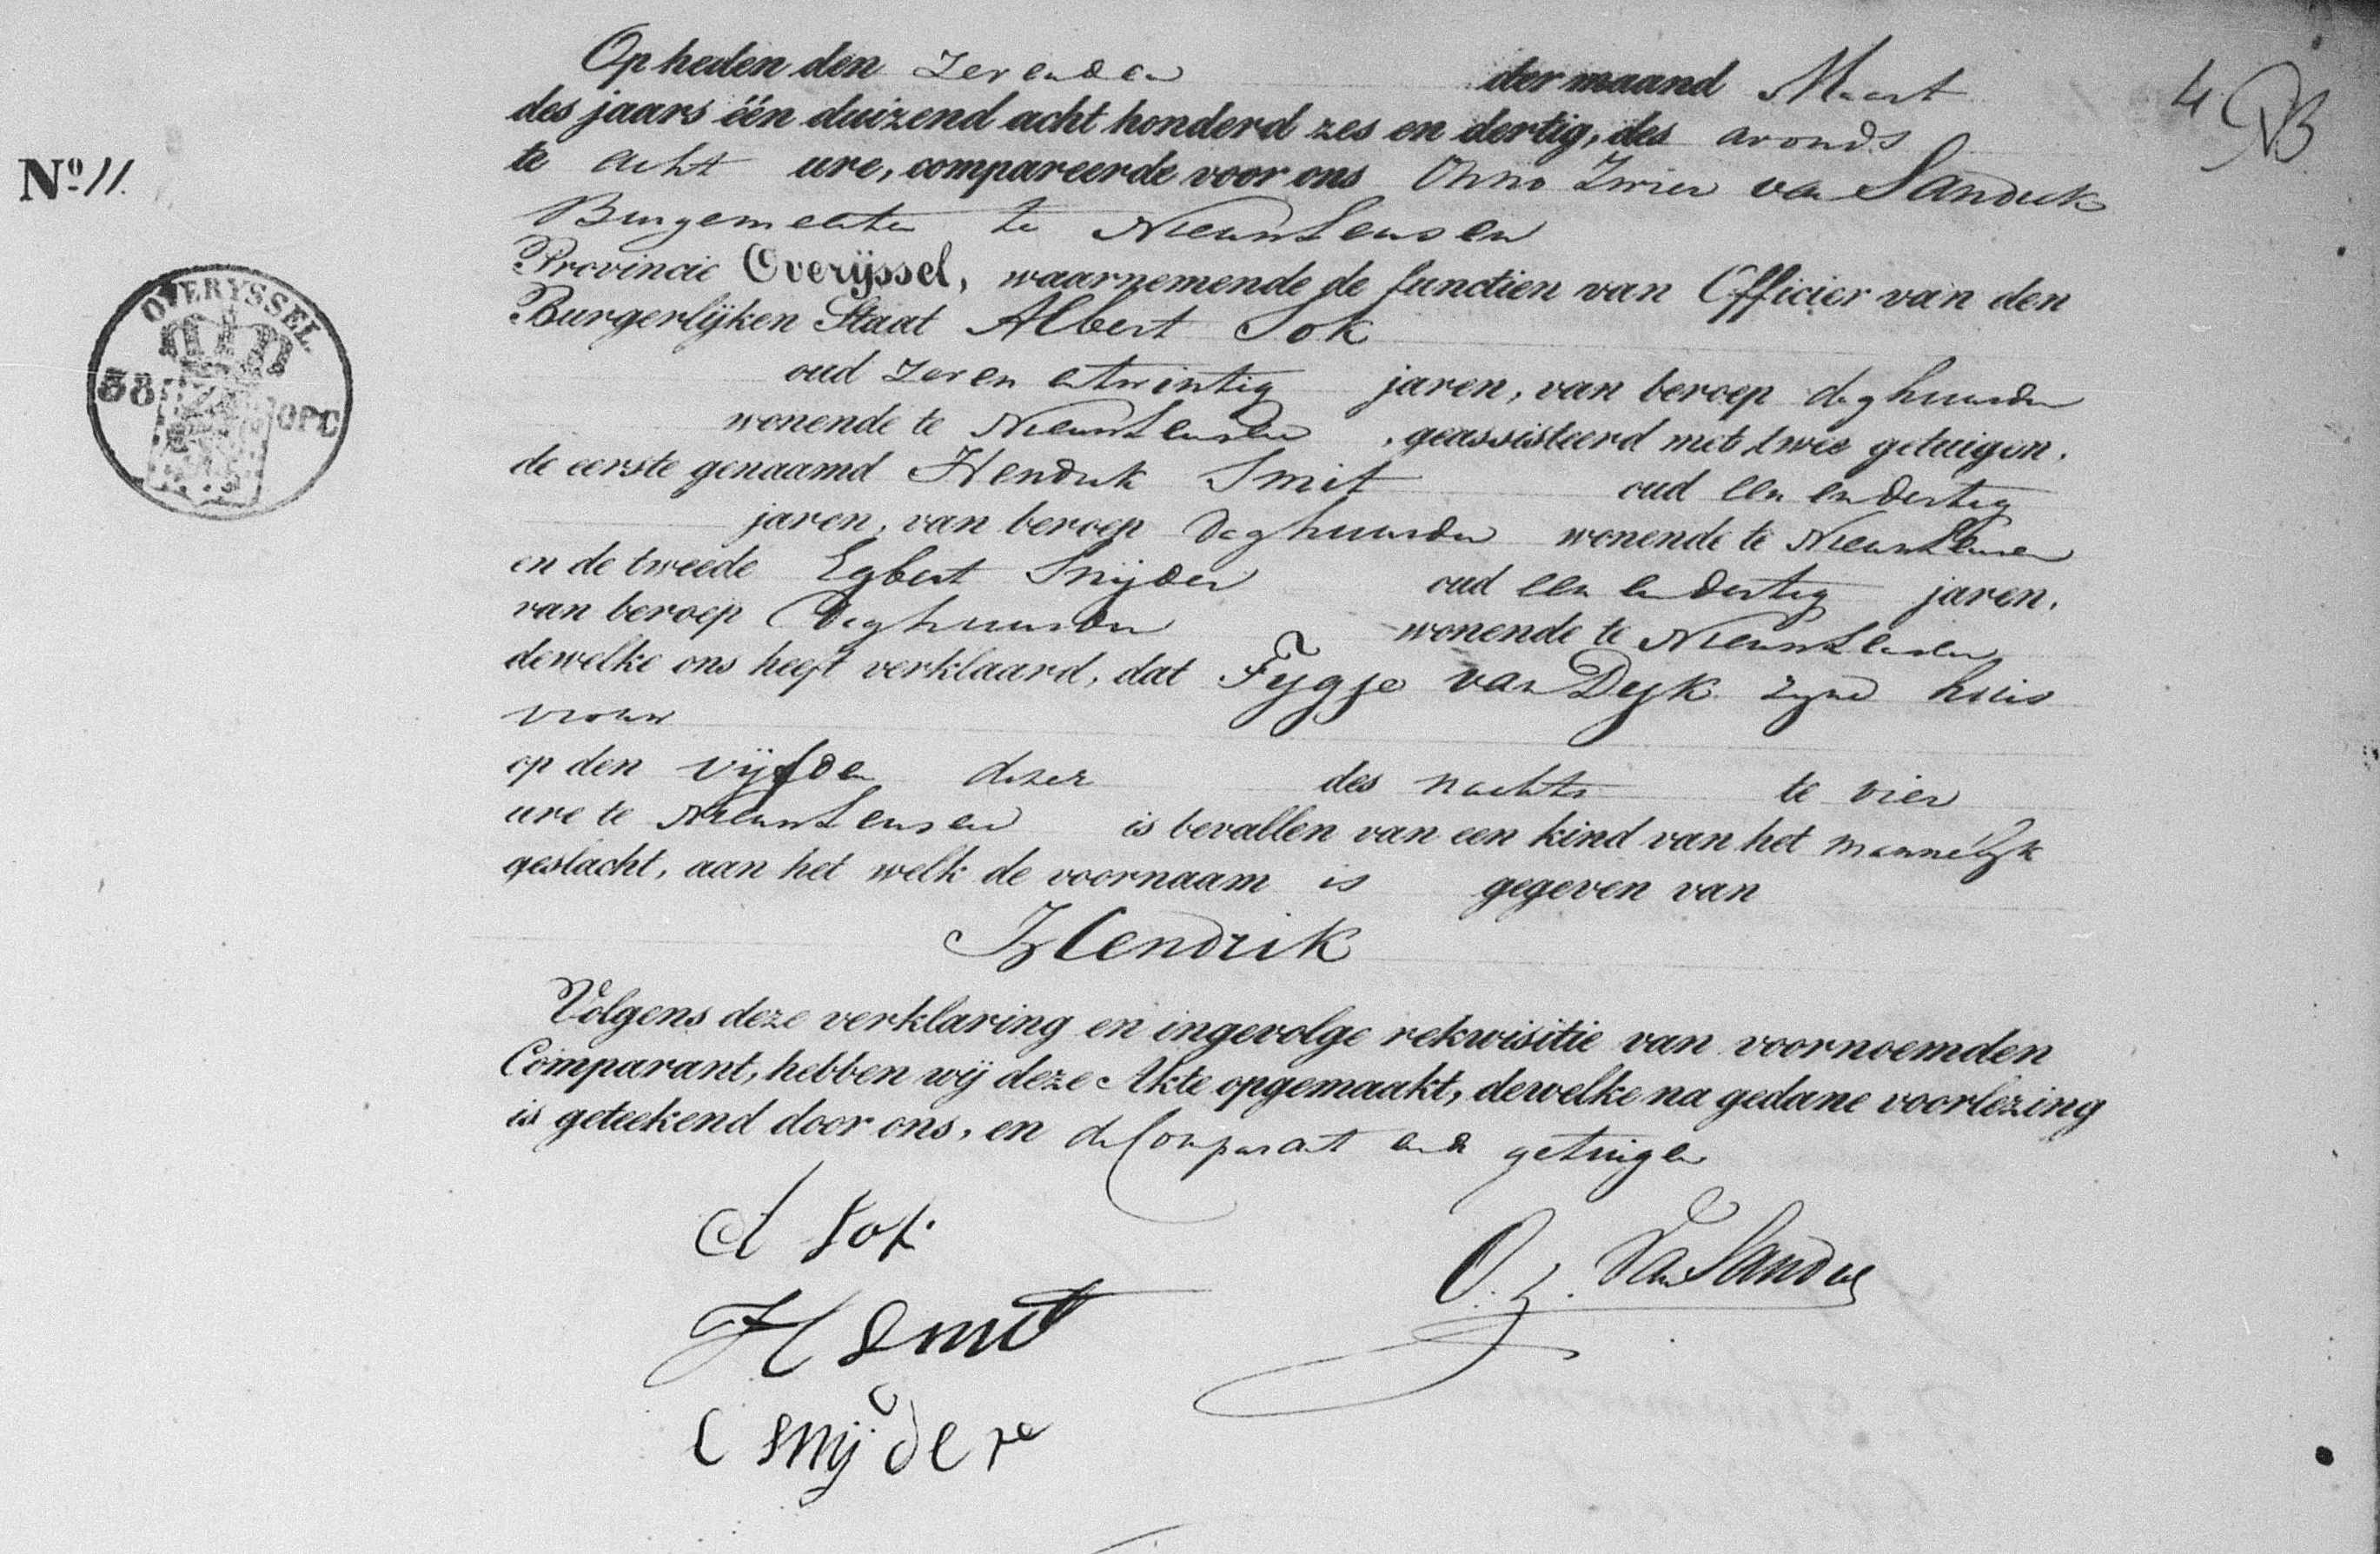 Op heden den zevenden der maand Maart
4
des jaars één duizend acht honderd zes en dertig, des avonds
No. 11.
te acht ure, compareerde voor ons Onno Zwier van Sandick
Burgemeester te Nieuwleusen
Provincie Overijssel, waarnemende de functien van Officier van den
Burgerlijken Staat Albert Sok
OVERYSSEL
38 OPC
oud zeven entwintig jaren, van beroep daghuurder
wonende te Nieuwleusen, geassisteerd met twee getuigen,
de eerste genaamd Hendrik Smit oud een en dertig
jaren, van beroep daghuurder wonende te Nieuwleusen
en de tweede Egbert Snijder oud een en dertig jaren,
van beroep Daghuurder wonende te Nieuwleusen
dewelke ons heeft verklaard, dat Fygje van Dyk zyne huis
vrouw
op den vijfden dezer des nachts te vier
ure te Nieuwleusen is bevallen van een kind van het mannelyk
geslacht, aan het welk de voornaam is gegeven van
Hendrik
Volgens deze verklaring en ingevolge rekwisitie van voornoemden
Comparant, hebben wij deze Akte opgemaakt, dewelke na gedane voorlezing
is geteekend door ons, en de Comparant en de getuigen
A Sok
O. Z. Van Sandick
H Smit
E Snijder